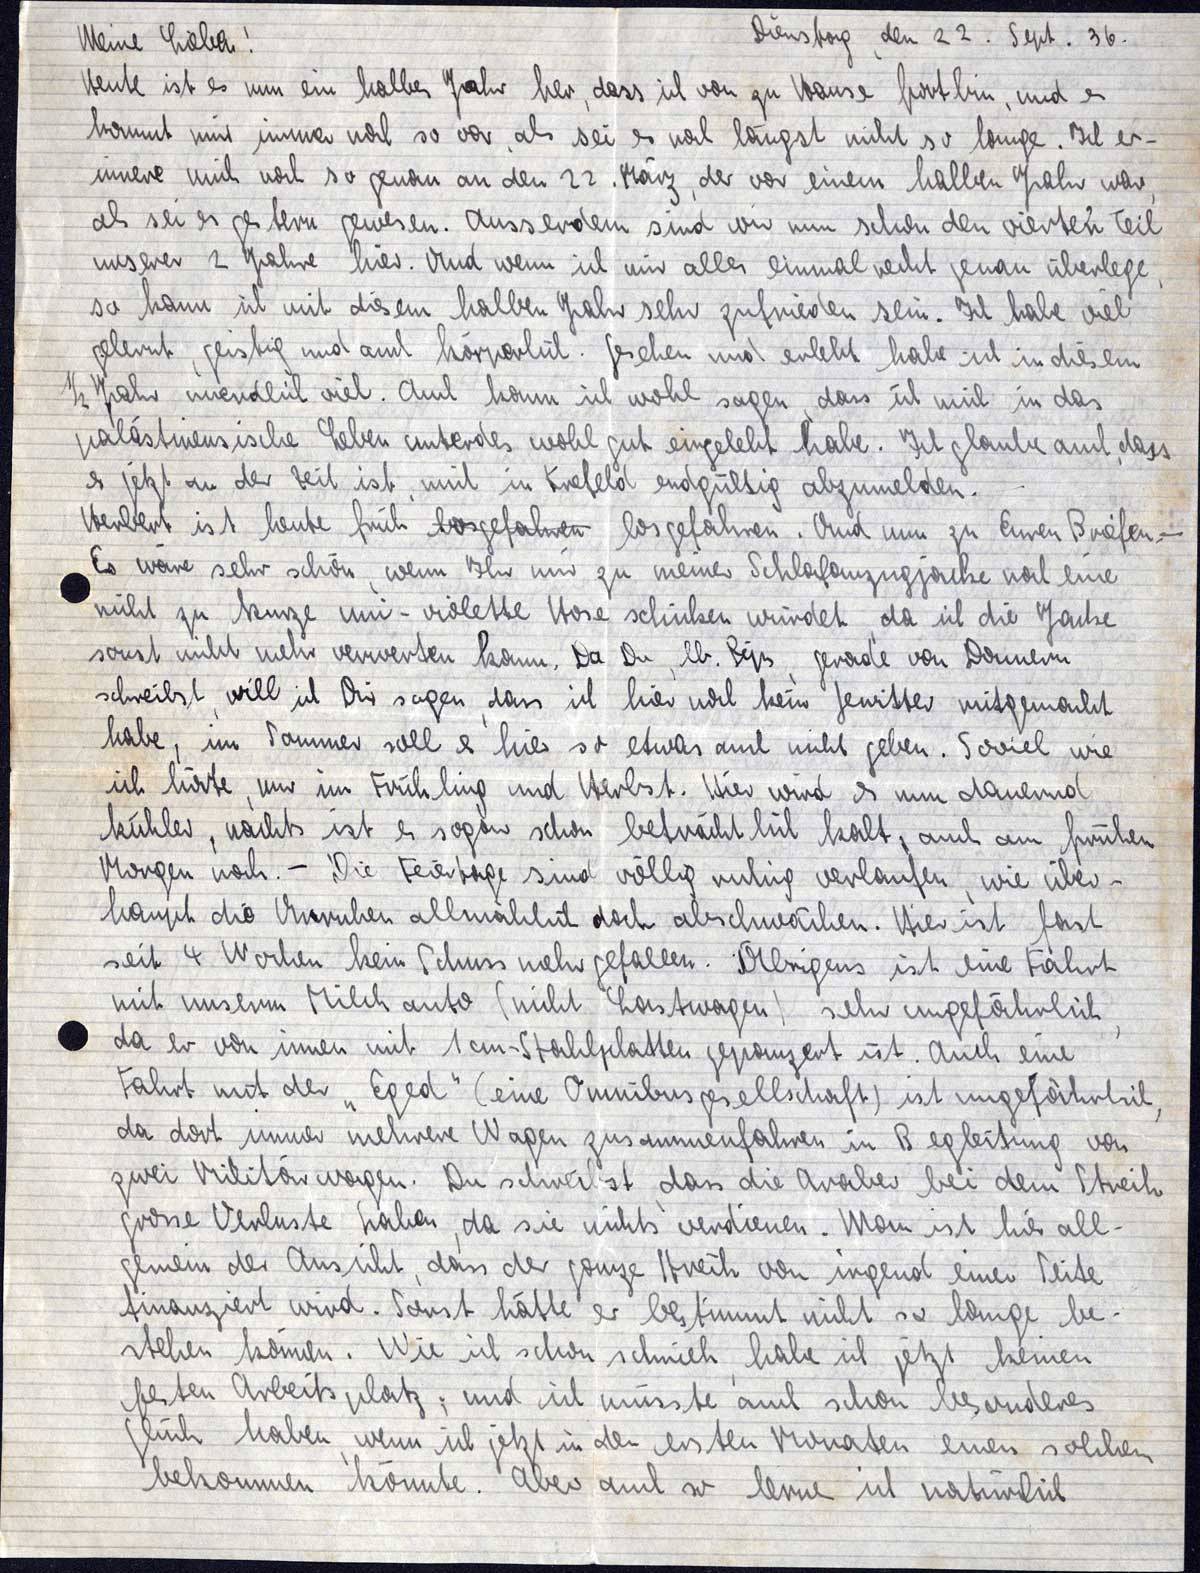 Dienstag, den 22. Sept. 36.
Meine Lieben!
Heute ist es nun ein halbes Jahr her, dass ich von zu Hause fort bin, und es
kommt mir immer noch so vor, als sei es noch längst nicht so lange. Ich er-
innere mich noch so genau an den 22. März, der vor einem halben Jahr war,
als sei es gestern gewesen. Ausserdem sind wir nun schon den vierten Teil
unserer 2 Jahre hier. Und wenn ich mir alles einmal recht genau überlege,
so kann ich mit diesem halben Jahr sehr zufrieden sein. Ich habe viel
gelernt, geistig und auch körperlich. Gesehen und erlebt habe ich in diesem
1/2 Jahr unendlich viel. Auch kann ich wohl sagen, dass ich mich in das
palästinensische Leben unterdes wohl gut eingelebt habe. Ich glaube auch, dass
es jetzt an der Zeit ist, mich in Krefeld endgültig abzumelden.
Herbert ist heute früh losgefahren losgefahren. Und nun zu Euren Briefen. —
Es wäre sehr schön, wenn Ihr mir zu meiner Schlafanzugjacke noch eine
nicht zu kurze uni-violette Hose schicken würdet, da ich die Jacke
sonst nicht mehr verwerten kann. Da Du, lb. gerade von Donnern
schreibst, will ich Dir sagen, dass ich hier noch kein Gewitter mitgemacht
habe, im Sommer soll es hier so etwas auch nicht geben. Soviel wie
ich hörte, nur im Frühling und Herbst. Hier wird es nun dauernd
kühler, nachts ist es sogar schon beträchtlich kalt, auch am frühen
Morgen noch. — Die Feiertage sind völlig ruhig verlaufen, wie über-
haupt die Unruhen allmählich doch abschwächen. Hier ist fast
seit 4 Wochen kein Schuss mehr gefallen. Übrigens ist eine Fahrt
mit unserm Milchauto (nicht Lastwagen) sehr ungefährlich,
da er von innen mit 1 cm-Stahlplatten gepanzert ist. Auch eine
Fahrt mit der „Eged“ (eine Omnibusgesellschaft) ist ungefährlich,
da dort immer mehrere Wagen zusammenfahren in Begleitung von
zwei Militärwagen. Du schreibst, dass die Araber bei dem Streik
grosse Verluste haben, da sie nichts verdienen. Man ist hier all-
gemein der Ansicht, dass der ganze Streik von irgend einer Seite
finanziert wird. Sonst hätte er bestimmt nicht so lange be-
stehen können. Wie ich schon schrieb, habe ich jetzt keinen
festen Arbeitsplatz; und ich müsste auch schon besonderes
Glück haben, wenn ich jetzt in den ersten Monaten einen solchen
bekommen könnte. Aber auch so lerne ich natürlich